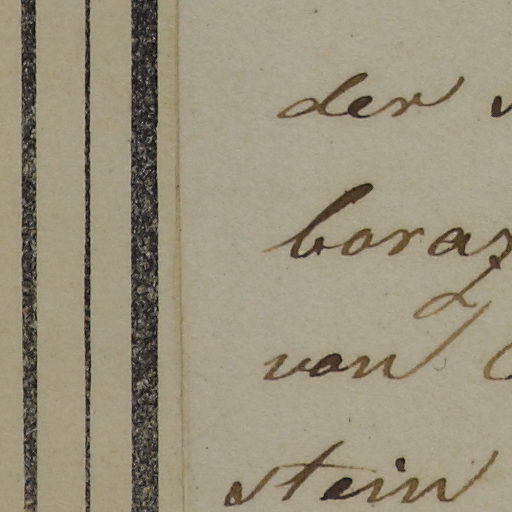 der
boraz
van
stein